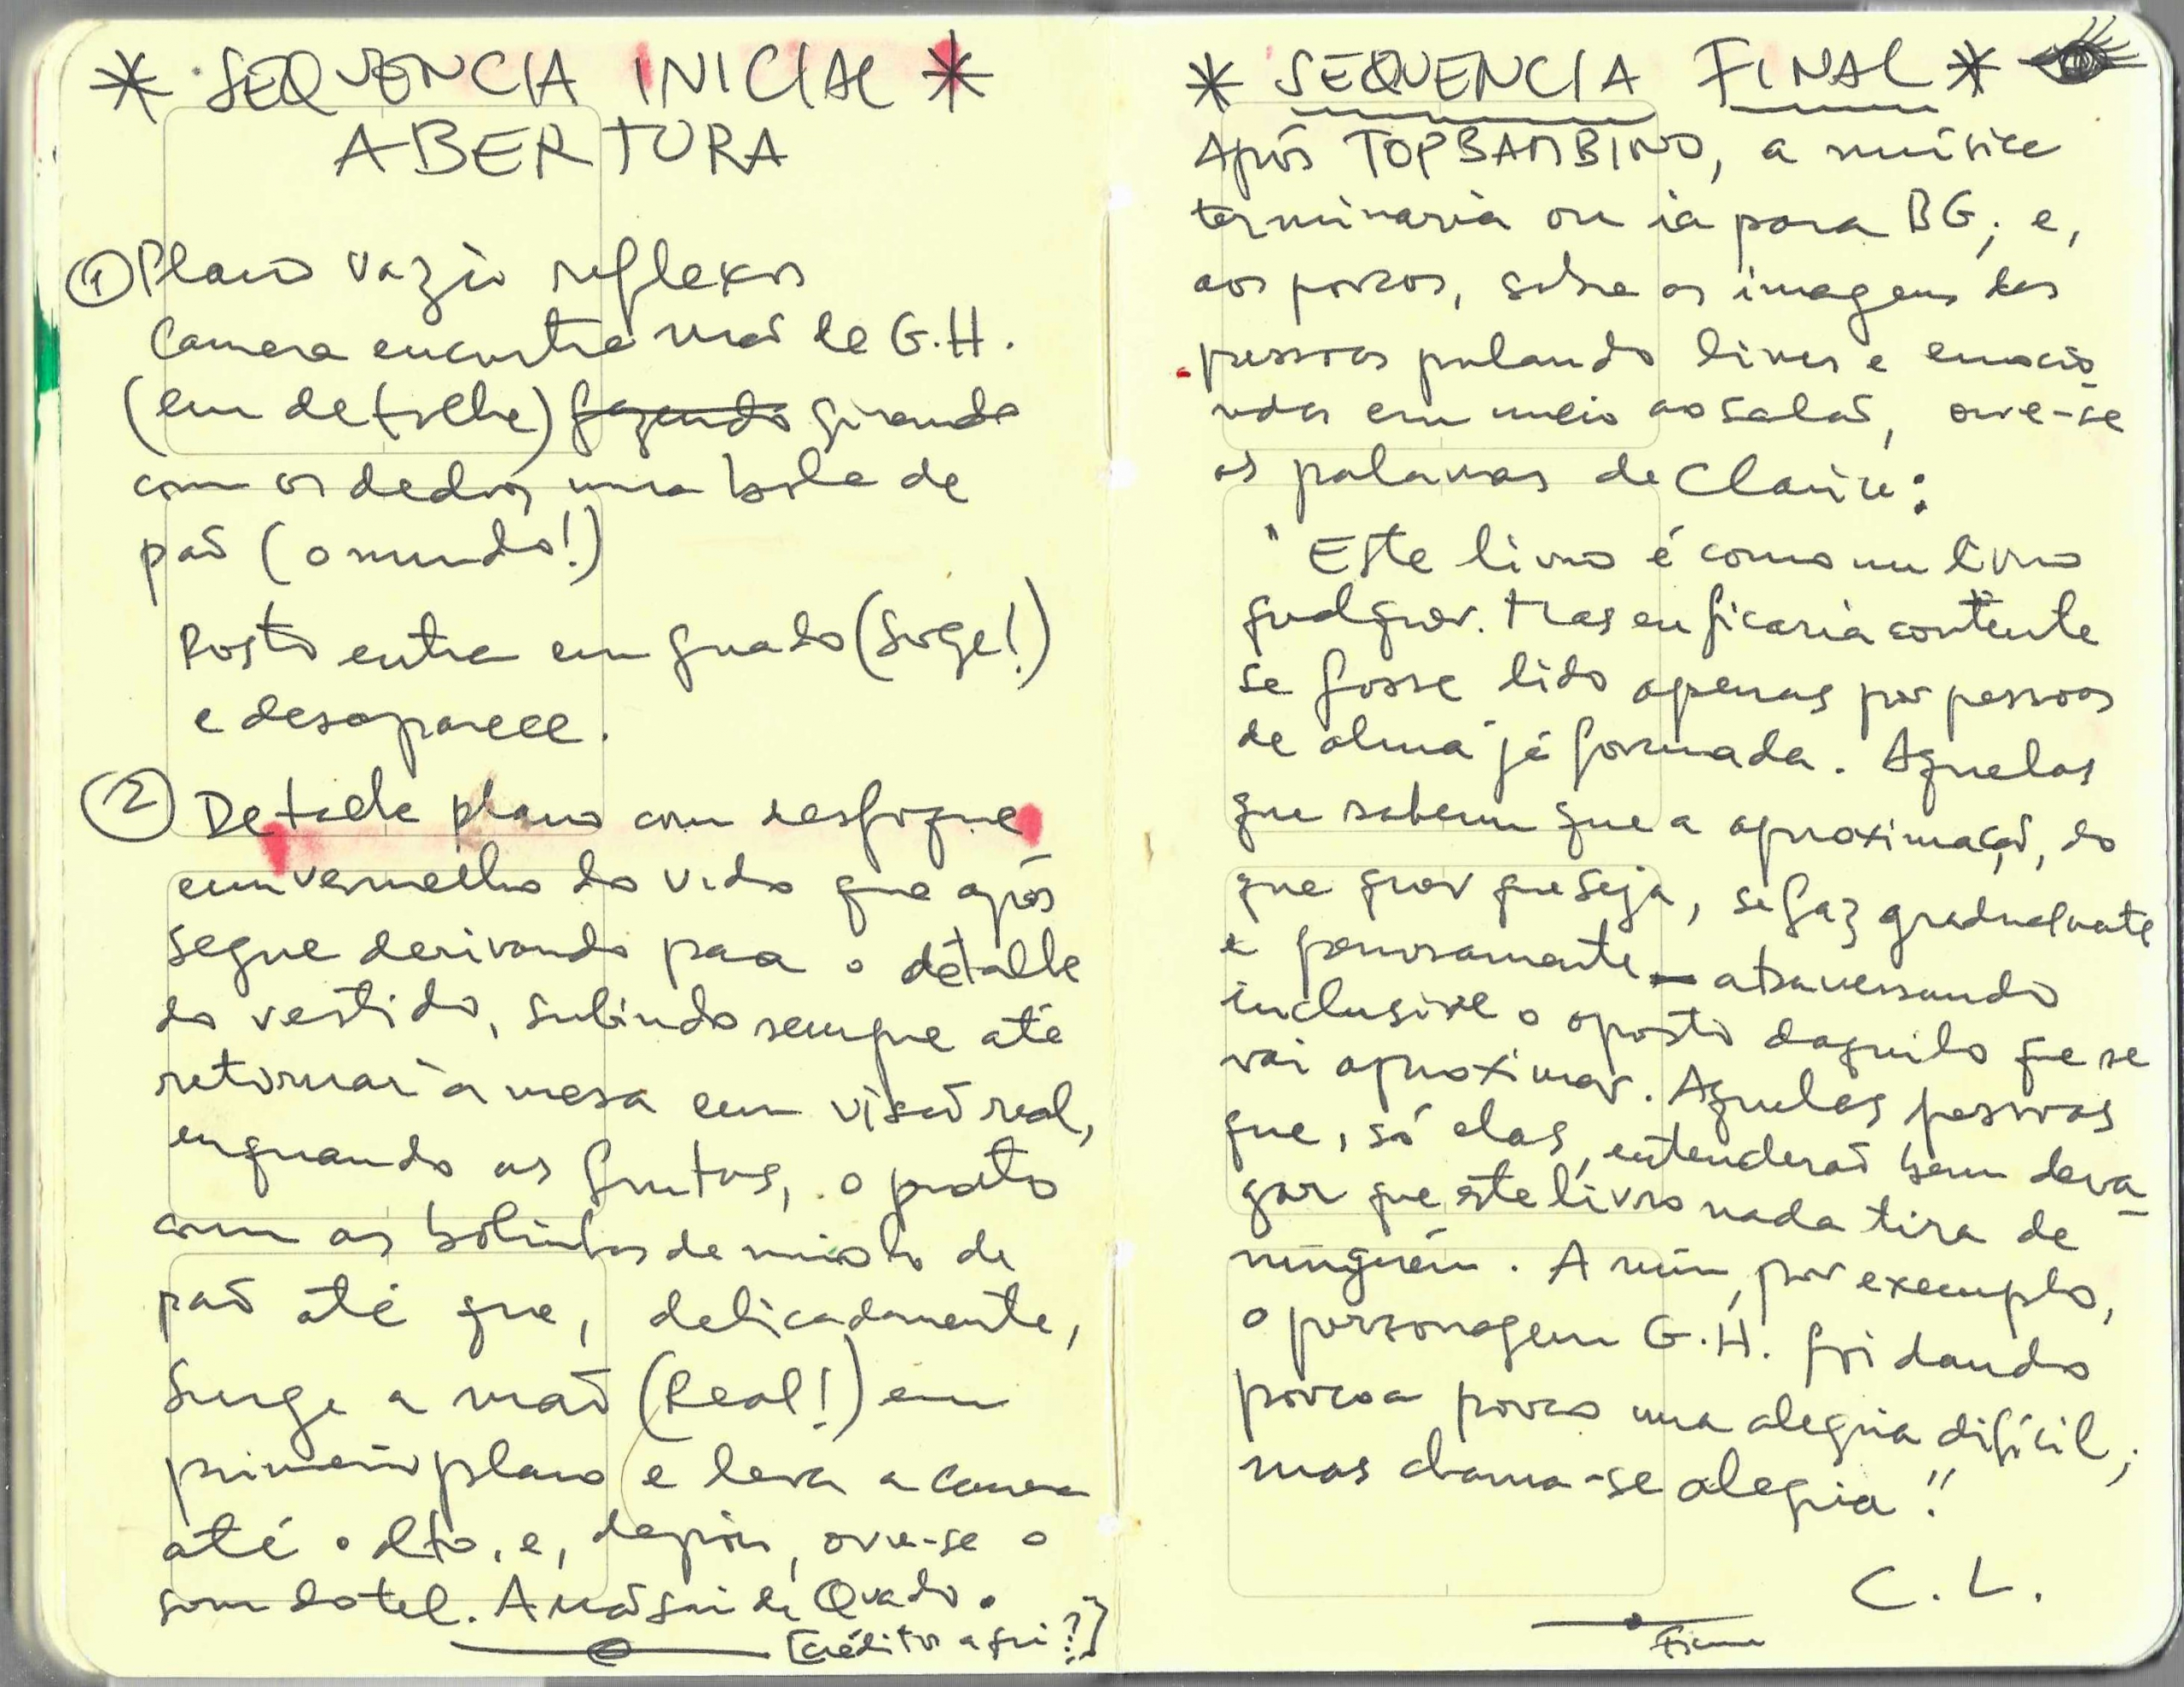 * SEQUENCIA INICIAL *
ABERTURA
① Plano vazio reflexos
Camera encontra mão de G.H.
(em detalhe) fazendo girando
com os dedos uma bola de
pão (o mundo!)
Rosto entra em quadro (Surge!)
e desaparece.
② Detalhe plano com desfoque
em vermelho do vidro que após
segue derivando para o detalhe
do vestido, subindo sempre até
retornar à mesa em visão real,
enquando as frutas, o prato
com as bolinhas de miolo de
pão até que, delicadamente,
Surge a mão (Real!) em
primeiro plano e leva a camera
até o alto, e, depois, ouve-se o
som do tel. A mão sai de Quadro.
[créditos aqui?]
* SEQUENCIA FINAL *
Após TOPBAMBINO, a música
terminaria ou ia para BG; e,
aos poucos, sobre as imagens das
pessoas pulando livres e emocio
nadas em meio ao salão, ouve-se
as palavras de Clarice:
"Este livro é como um livro
qualquer. Mas eu ficaria contente
se fosse lido apenas por pessoas
de alma já formada. Aquelas
que sabem que a aproximação, do
que quer que seja, se faz gradualmente
e penosamente — atravessando
inclusive o oposto daquilo que se
vai aproximar. Aquelas pessoas
que, só elas, entenderão bem deva-
gar que este livro nada tira de
ninguém. A mim, por exemplo,
o personagem G.H. foi dando
pouco a pouco uma alegria difícil;
mas chama-se alegria!"
C. L.